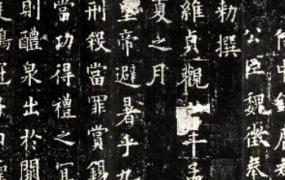 中鉅鹿
公臣魏徵奉
勑撰
維貞觀年孟
夏之月
皇帝避暑乎九
刑殺當罪賞錫
當功得禮之宜
則醴泉出於闕